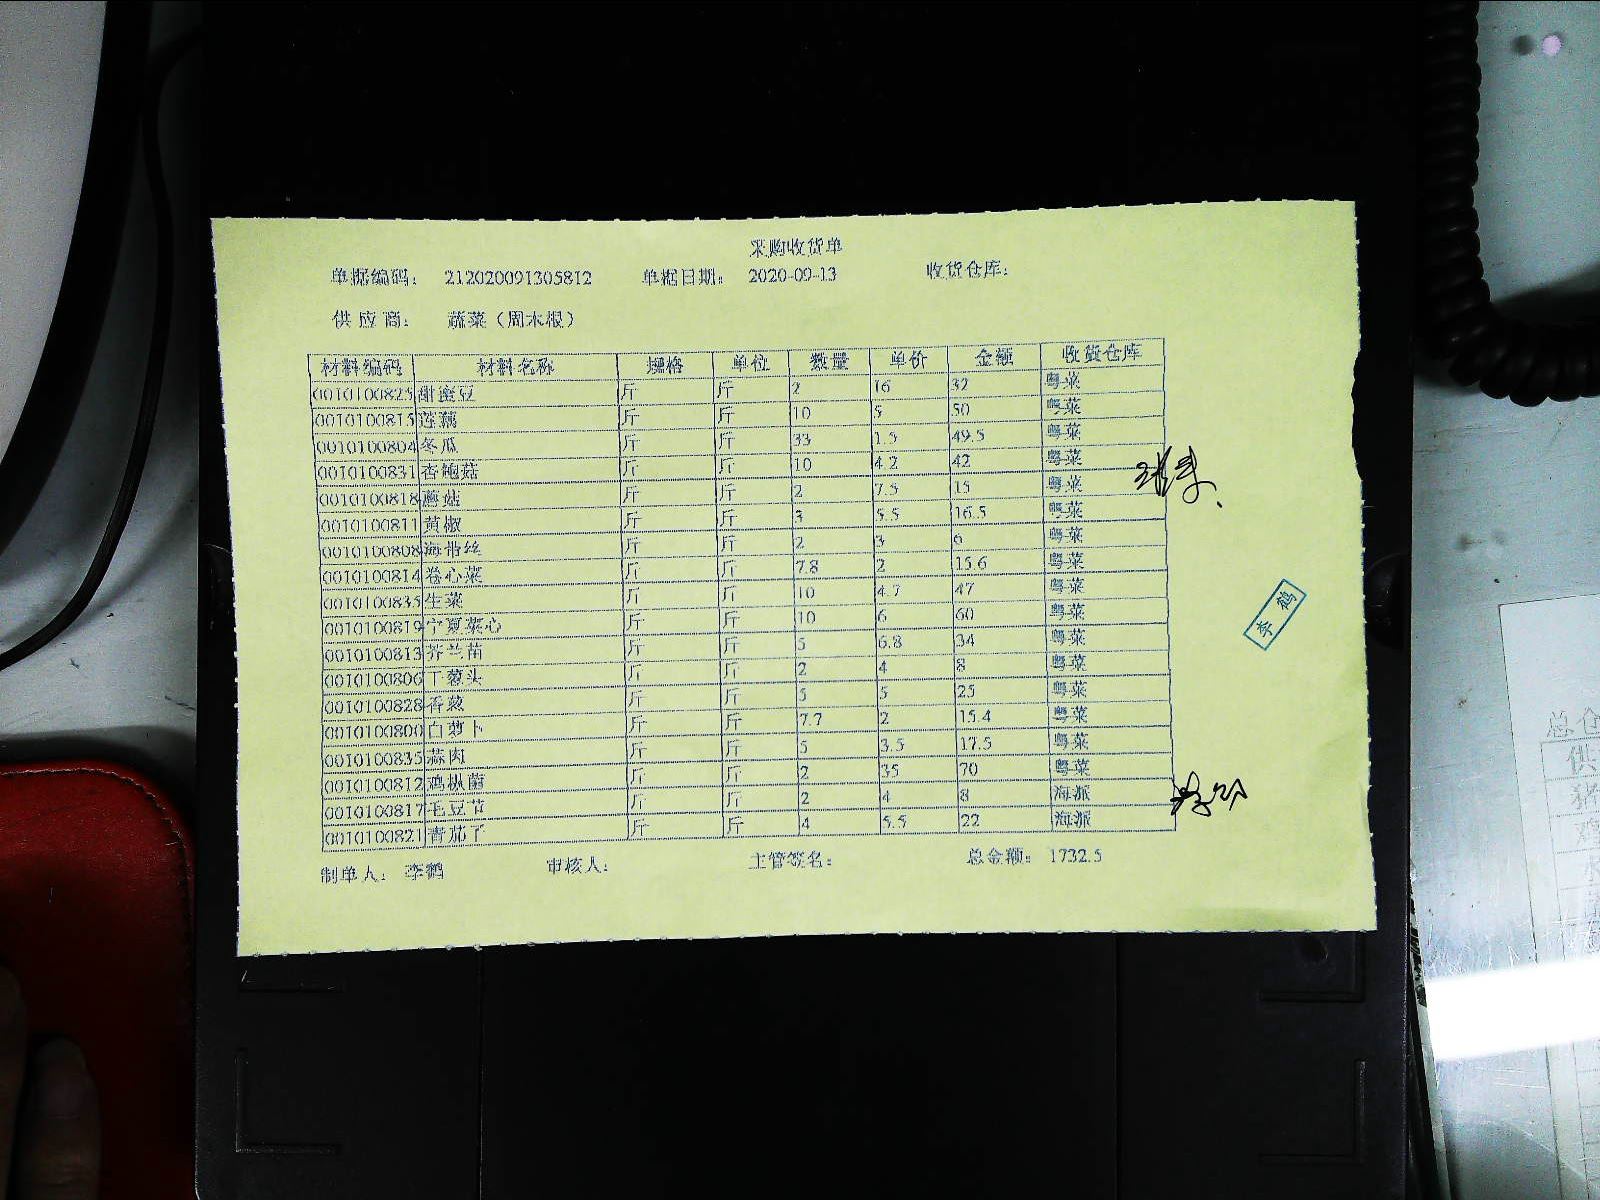 采购收货单
单据编码： 212020091305812 单据日期： 2020-09-13 收货仓库：
供 应 商： 蔬菜（周木根）
材料编码 材料名称 规格 单位 数量 单价 金额 收货仓库
0010100825 甜蜜豆 斤 斤 2 16 32 粤菜
0010100815 莲藕 斤 斤 10 5 50 粤菜
0010100804 冬瓜 斤 斤 33 1.5 49.5 粤菜
0010100831 杏鲍菇 斤 斤 10 4.2 42 粤菜
0010100818 蘑菇 斤 斤 2 7.5 15 粤菜
0010100811 黄椒 斤 斤 3 5.5 16.5 粤菜
0010100808 海带丝 斤 斤 2 3 6 粤菜
0010100814 卷心菜 斤 斤 7.8 2 15.6 粤菜
0010100835 生菜 斤 斤 10 4.7 47 粤菜
0010100819 宁夏菜心 斤 斤 10 6 60 粤菜
0010100813 芥兰苗 斤 斤 5 6.8 34 粤菜
0010100806 干葱头 斤 斤 2 4 8 粤菜
0010100828 香葱 斤 斤 5 5 25 粤菜
0010100800 白萝卜 斤 斤 7.7 2 15.4 粤菜
0010100835 蒜肉 斤 斤 5 3.5 17.5 粤菜
0010100812 鸡枞菌 斤 斤 2 35 70 粤菜
0010100817 毛豆节 斤 斤 2 4 8 海派
0010100821 青茄子 斤 斤 4 5.5 22 海派
制单人： 李鹤 审核人： 主管签名： 总金额： 1732.5
李鹤
总仓
供
猪
鸡